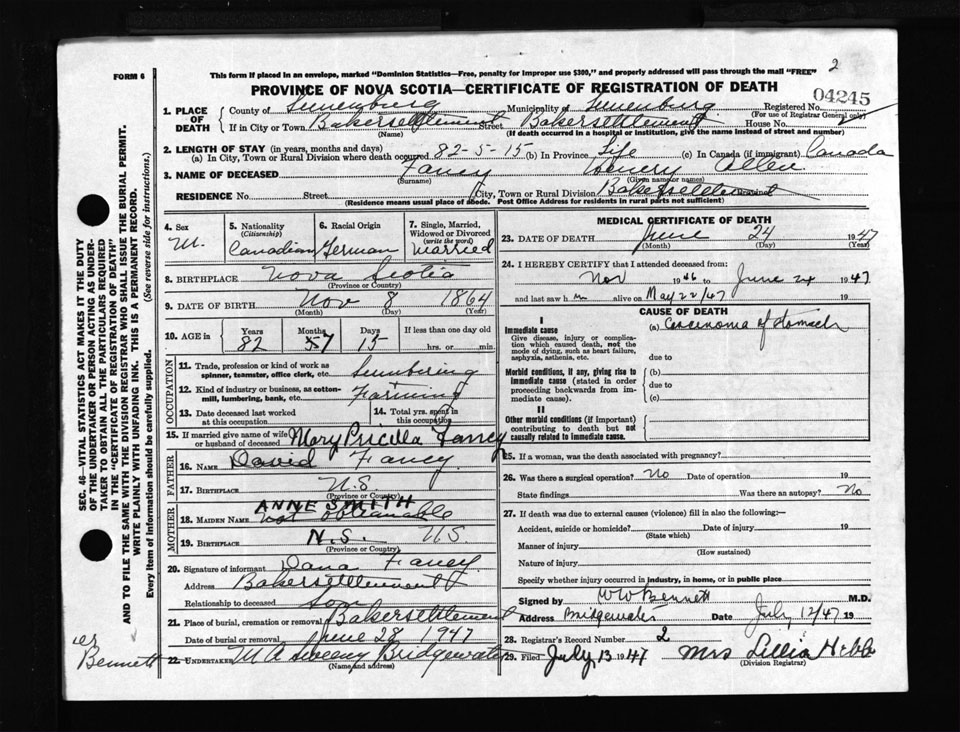 2
FORM 6
This form if placed in an envelope, marked "Dominion Statistics—Free, penalty for improper use $300," and properly addressed will pass through the mail "FREE"
PROVINCE OF NOVA SCOTIA—CERTIFICATE OF REGISTRATION OF DEATH
04245
1. PLACE OF DEATH
County of Lunenburg Municipality of Lunenburg Registered No.
(For use of Registrar General only)
If in City or Town Bakersettlement Street Bakersettlement House No.
(Name) (If death occurred in a hospital or institution, give the name instead of street and number)
2. LENGTH OF STAY (in years, months and days)
(a) In City, Town or Rural Division where death occurred 82-5-15 (b) In Province Life (c) In Canada (if immigrant) Canada
3. NAME OF DECEASED Fancy Henery Allen
(Surname) (Given name or names)
RESIDENCE No. Street City, Town or Rural Division Bakersettlement
(Residence means usual place of abode. Post Office Address for residents in rural parts not sufficient)
4. Sex M.
5. Nationality (Citizenship) Canadian
6. Racial Origin German
7. Single, Married, Widowed or Divorced (write the word) Married
8. BIRTHPLACE Nova Scotia
(Province or Country)
9. DATE OF BIRTH Nov 8 1864
(Month) (Day) (Year)
10. AGE in Years 82 Months 57 Days 15 If less than one day old hrs. or min.
OCCUPATION
11. Trade, profession or kind of work as spinner, teamster, office clerk, etc. Lumbering
12. Kind of industry or business, as cotton-mill, lumbering, bank, etc. Farming
13. Date deceased last worked at this occupation
14. Total yrs. spent in this occupation
15. If married give name of wife or husband of deceased Mary Pricilla Fancy
FATHER
16. NAME David Fancy
17. BIRTHPLACE N.S.
(Province or Country)
MOTHER
ANNE SMITH
18. MAIDEN NAME not obtainable
19. BIRTHPLACE N.S. N.S.
(Province or Country)
20. Signature of informant Dana Fancy
Address Bakersettlement
Relationship to deceased Son
21. Place of burial, cremation or removal Bakersettlement
Date of burial or removal June 28 1947
22. UNDERTAKER M A Sweeny Bridgewater
(Name and address)
MEDICAL CERTIFICATE OF DEATH
23. DATE OF DEATH June 24 1947
(Month) (Day) (Year)
24. I HEREBY CERTIFY that I attended deceased from:
Nov 1946 to June 24 1947
and last saw h m alive on May 22/47 19
CAUSE OF DEATH
I
Immediate cause
Give disease, injury or complication which caused death, not the mode of dying, such as heart failure, asphyxia, asthenia, etc.
(a) Carcinoma of Stomach
due to
Morbid conditions, if any, giving rise to immediate cause (stated in order proceeding backwards from immediate cause).
(b)
due to
(c)
II
Other morbid conditions (if important) contributing to death but not causally related to immediate cause.
25. If a woman, was the death associated with pregnancy?
26. Was there a surgical operation? No Date of operation 19
State findings Was there an autopsy? No
27. If death was due to external causes (violence) fill in also the following:—
Accident, suicide or homicide? Date of injury 19
(State which)
Manner of injury
(How sustained)
Nature of injury
Specify whether injury occurred in industry, in home, or in public place
Signed by W W Bennett M.D.
Address Bridgewater Date July 12/47 19
28. Registrar's Record Number 2
29. Filed July 13 1947 Mrs Lillia Hebb
(Division Registrar)
SEC. 46—VITAL STATISTICS ACT MAKES IT THE DUTY
OF THE UNDERTAKER OR PERSON ACTING AS UNDER-
TAKER TO OBTAIN ALL THE PARTICULARS REQUIRED
IN THE "CERTIFICATE OF REGISTRATION OF DEATH"
AND TO FILE THE SAME WITH THE DIVISION REGISTRAR WHO SHALL ISSUE THE BURIAL PERMIT.
WRITE PLAINLY WITH UNFADING INK. THIS IS A PERMANENT RECORD.
Every item of information should be carefully supplied. (See reverse side for instructions.)
Bennett